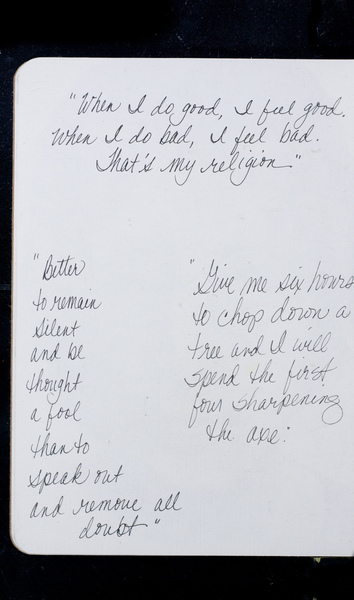 "When I do good, I feel good.
When I do bad, I feel bad.
That's my religion"
"Better
to remain
silent
and be
thought
a fool
than to
speak out
and remove all
doubt"
"Give me six hours
to chop down a
tree and I will
spend the first
four sharpening
the axe."